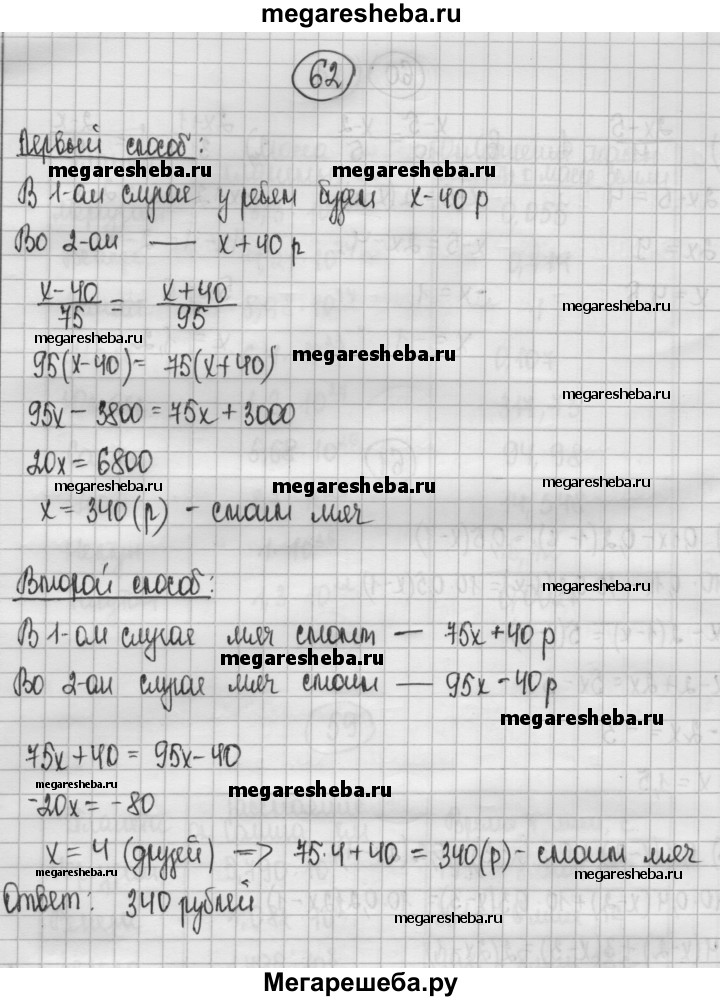 megaresheba.ru
62
Первый способ:
megaresheba.ru megaresheba.ru
В 1-ом случае у ребят будет x-40 р
Во 2-ом — x+40 р
x-40/75 = x+40/95
megaresheba.ru
megaresheba.ru
95(x-40)= 75(x+40)
megaresheba.ru
megaresheba.ru
95x - 3800 = 75x + 3000
20x = 6800
megaresheba.ru megaresheba.ru megaresheba.ru
x = 340 (р) - стоит мяч
Второй способ:
megaresheba.ru
В 1-ом случае мяч стоит — 75x+40 р
megaresheba.ru
Во 2-ом случае мяч стоит — 95x-40р
megaresheba.ru
75x+40 = 95x-40
megaresheba.ru megaresheba.ru megaresheba.ru
-20x = -80
x = 4 (друзей) => 75·4+40 = 340(р)- стоит мяч
megaresheba.ru megaresheba.ru
Ответ: 340 рублей
megaresheba.ru
Мегарешеба.ру